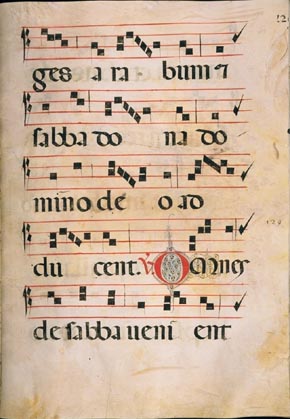 ges a ra bum ⁊
sabba do na do
mino de o ad
du cent. V Omnes
de sabba ueni ent